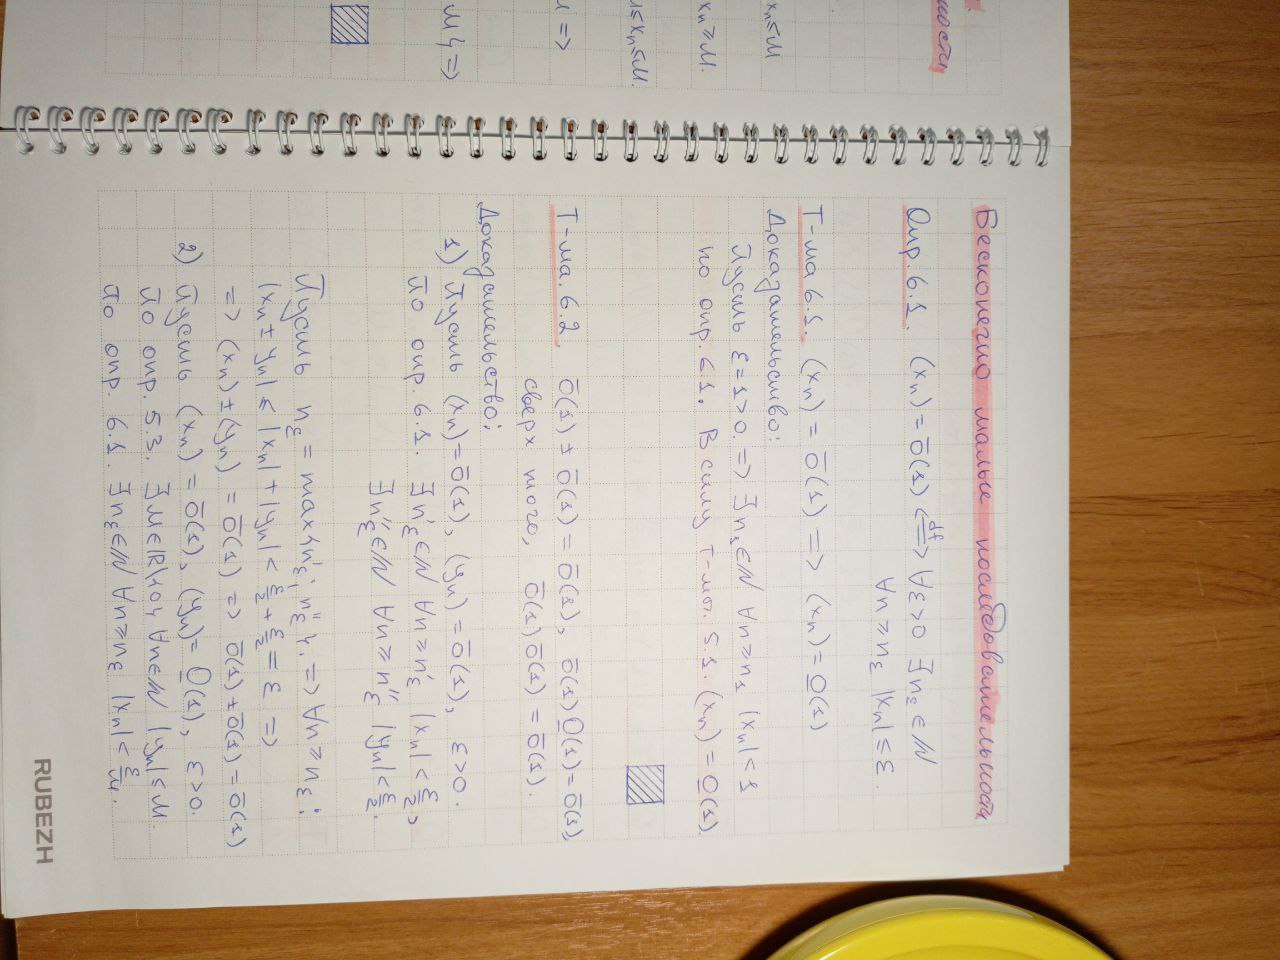 ности
xₙ ≤ M
xₙ ≥ M.
≤ xₙ ≤ M.
=>
M} =>
Бесконечно малые последовательности
Опр. 6.1. (xₙ) = ō(1) <=>^{df} ∀ε>0 ∃n_ε∈ℕ
∀n ≥ n_ε |xₙ| ≤ ε
Т-ма 6.1. (xₙ) = ō(1) => (xₙ) = O̲(1)
Доказательство:
Пусть ε=1>0. => ∃n₁∈ℕ ∀n≥n₁ |xₙ| < 1
по опр. 6.1. В силу т-мы. 5.1. (xₙ) = O̲(1).
Т-ма. 6.2. ō(1) ± ō(1) = ō(1), ō(1) O̲(1) = ō(1),
сверх того, ō(1) ō(1) = ō(1).
Доказательство:
1) Пусть (xₙ) = ō(1), (yₙ) = ō(1), ε>0.
По опр. 6.1. ∃n'_ε∈ℕ ∀n≥n'_ε |xₙ| < ε/2,
∃n''_ε∈ℕ ∀n≥n''_ε |yₙ| < ε/2.
Пусть n_ε = max{n'_ε, n''_ε}. => ∀n ≥ n_ε:
|xₙ ± yₙ| ≤ |xₙ| + |yₙ| < ε/2 + ε/2 = ε =>
=> (xₙ) ± (yₙ) = ō(1) => ō(1) ± ō(1) = ō(1)
2) Пусть (xₙ) = ō(1), (yₙ) = O̲(1), ε>0.
По опр. 5.3. ∃M∈ℝ\{0} ∀n∈ℕ |yₙ| ≤ M.
По опр. 6.1. ∃n_ε∈ℕ ∀n≥n_ε |xₙ| < ε/M.
RUBEZH